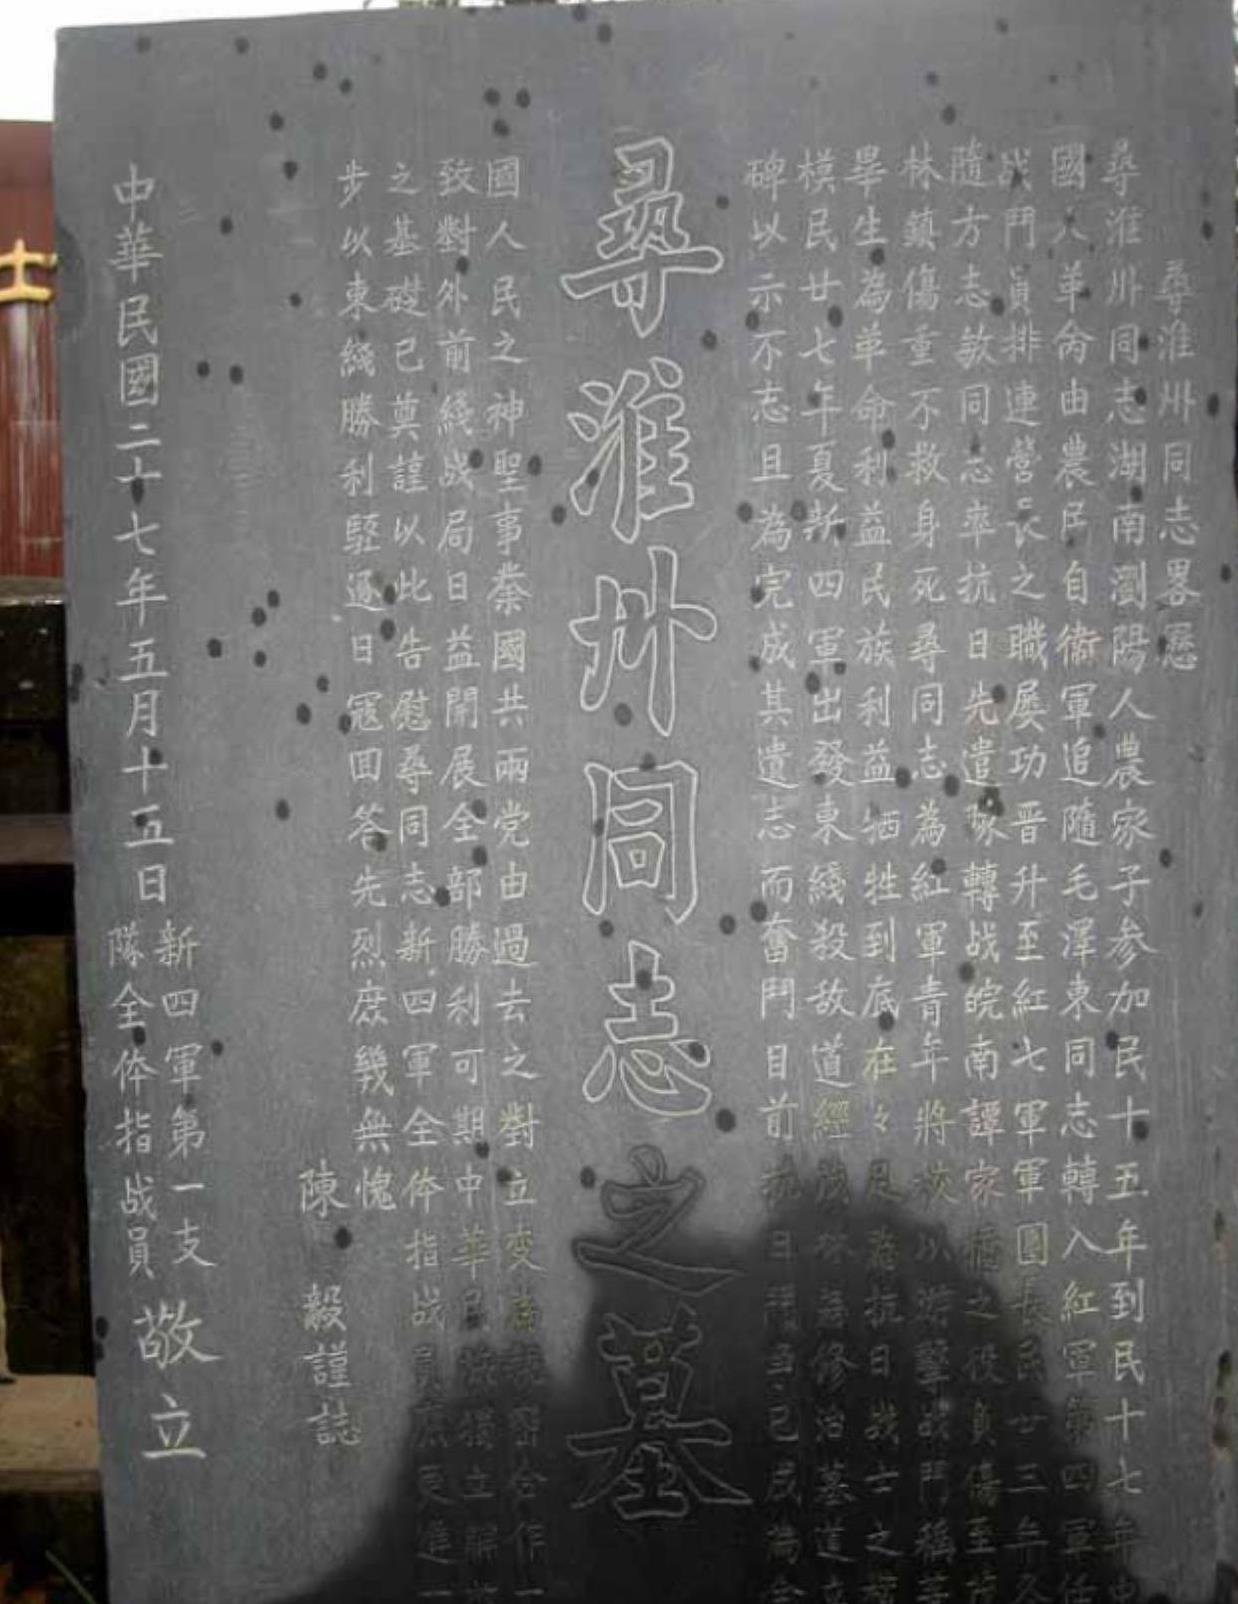 尋淮州同志畧歷
尋淮州同志湖南瀏陽人農家子参加民十五年到民十七年中
國人革命由農民自衛軍追隨毛澤東同志轉入紅軍第四軍任
战鬥員排連營長之職屡功晋升至紅七軍軍團長民廿三年冬
隨方志敏同志率抗日先遣隊轉战皖南譚家橋之役負傷至茂
林鎮傷重不救身死尋同志為紅軍青年將
以游擊战鬥稱著
畢生為革命利益民族利益牺牲到底在々足為抗日战士之楷
模民廿七年夏新四軍出發東綫殺敌道經茂林為修治墓道立
碑以示不忘且為完成其遺志而奮鬥目前抗日
已成為全
尋淮州同志之墓
國人民之神聖事業國共兩党由過去之對立变為
密合作一
致對外前綫战局日益開展全部勝利可期中華民族獨立解放
之基礎已奠謹以此告慰尋同志新四軍全体指战員庶更進一
步以東綫勝利駆逐日寇囬答先烈庶幾無愧
陳毅謹誌
中華民國二十七年五月十五日
新四軍第一支
隊全体指战員
敬立